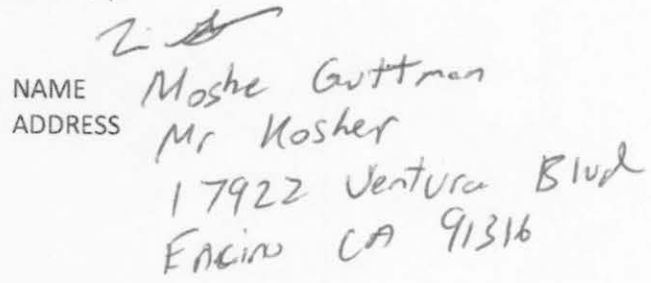 NAME Moshe Guttman
ADDRESS Mr Kosher
17922 Ventura Blvd
Encino CA 91316